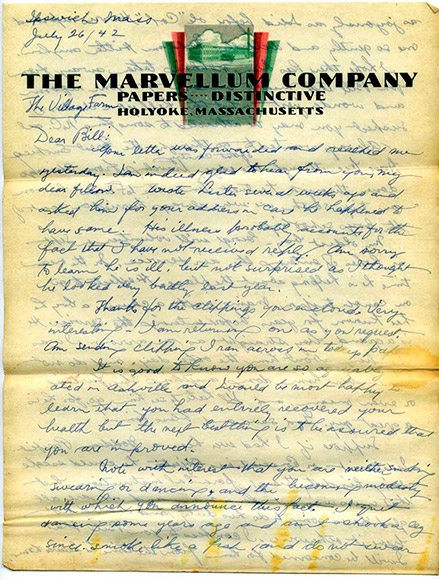 Ipswich Mass
July 26/42
THE MARVELLUM COMPANY
PAPERS ···· DISTINCTIVE
HOLYOKE, MASSACHUSETTS
The Village Farm
Dear Bill:
Your letter was forwarded and reached me
yesterday. I am indeed glad to hear from you, my
dear friend. I wrote several weeks ago and
asked him for your address in case he happened to
have same. His illness probably accounts for the
fact that I have not received reply. Am sorry
to learn he is ill, but not surprised as I thought
he looked very badly last year.
Thanks for the clippings you enclosed. Very
interesting - I am returning one as you request.
Am sending clipping I ran across in
It is good to know you are so
ated in Ashville and I would be most happy to
learn that you had entirely recovered your
health but the next best thing is to be assured that
you are improved.
Note with interest that you are neither smoking
swearing or dancing, and the becoming modesty
with which you announce this fact. I quit
dancing some years ago and
since, smoke like a and do not swear